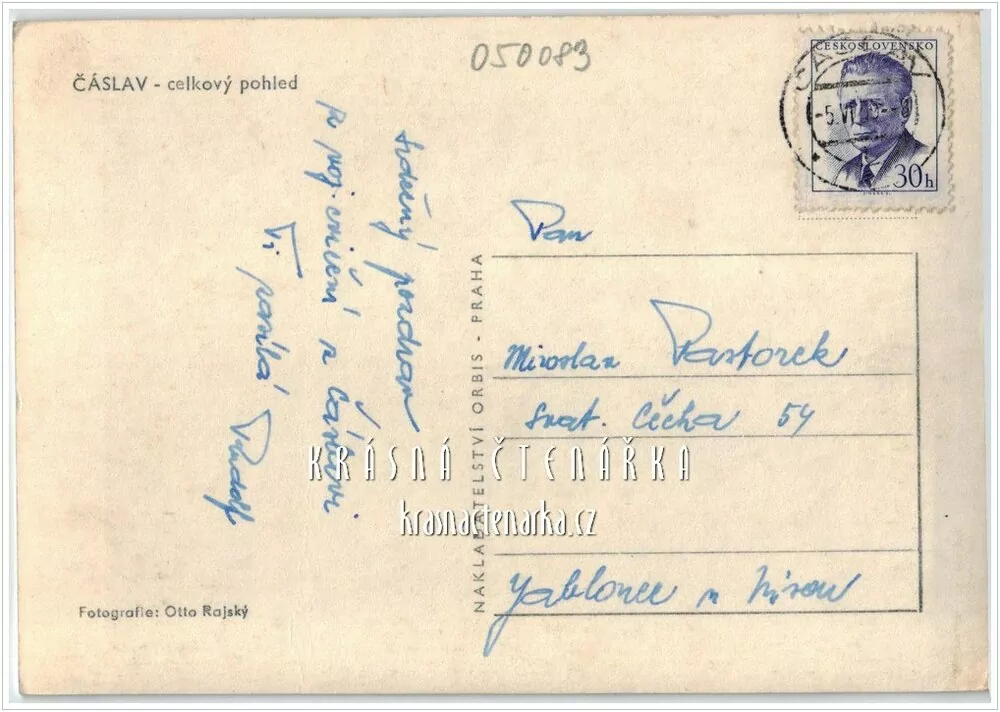 050083
ČÁSLAV - celkový pohled
ČESKOSLOVENSKO
30h
ČÁSLAV
-5.VI
Srdečný pozdrav
po voj. cvičení z Čáslavi
Ti posílá
Rudolf
Pan
Miroslav Pastorek
Svat. Čecha 54
Jablonec n Nisou
NAKLADATELSTVÍ ORBIS - PRAHA
KRÁSNÁ ČTENÁŘKA
krasnactenarka.cz
Fotografie: Otto Rajský